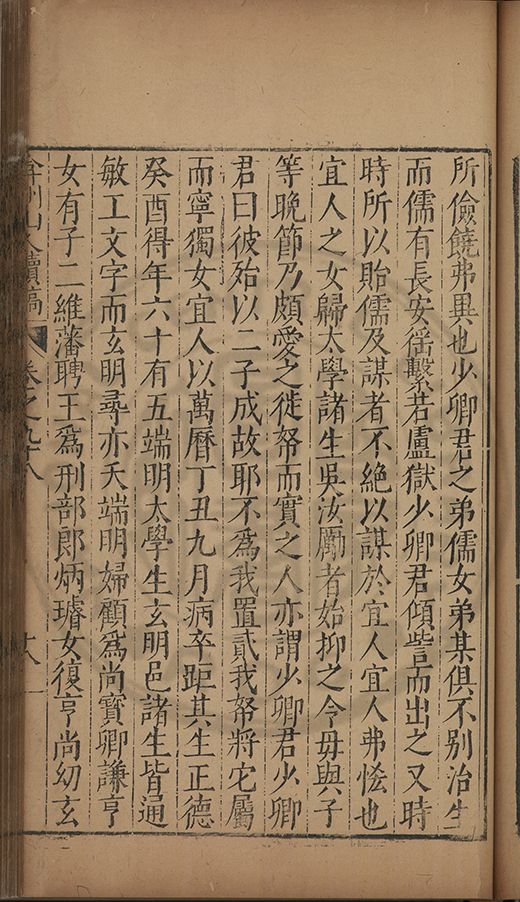 所儉饒弗異也少卿君之弟儒女弟某俱不别治生
而儒有長安徭繫若盧獄少卿君傾訾而出之又時
時所以貽儒及謀者不絶以謀於宜人宜人弗恡也
宜人之女歸太學諸生吳汝勵者始抑之令毋與子
等晚節乃頗愛之徙帑而實之人亦謂少卿君少卿
君曰彼殆以二子成故耶不爲我置貳我帑將它屬
而寧獨女宜人以萬曆丁丑九月病卒距其生正德
癸酉得年六十有五端明太學生玄明邑諸生皆通
敏工文字而玄明尋亦夭端明婦顧爲尚寳卿謙亨
女有子二維藩聘王爲刑部郎炳璿女復亨尚幼玄
弇州山人續稿 卷之九十八 十八